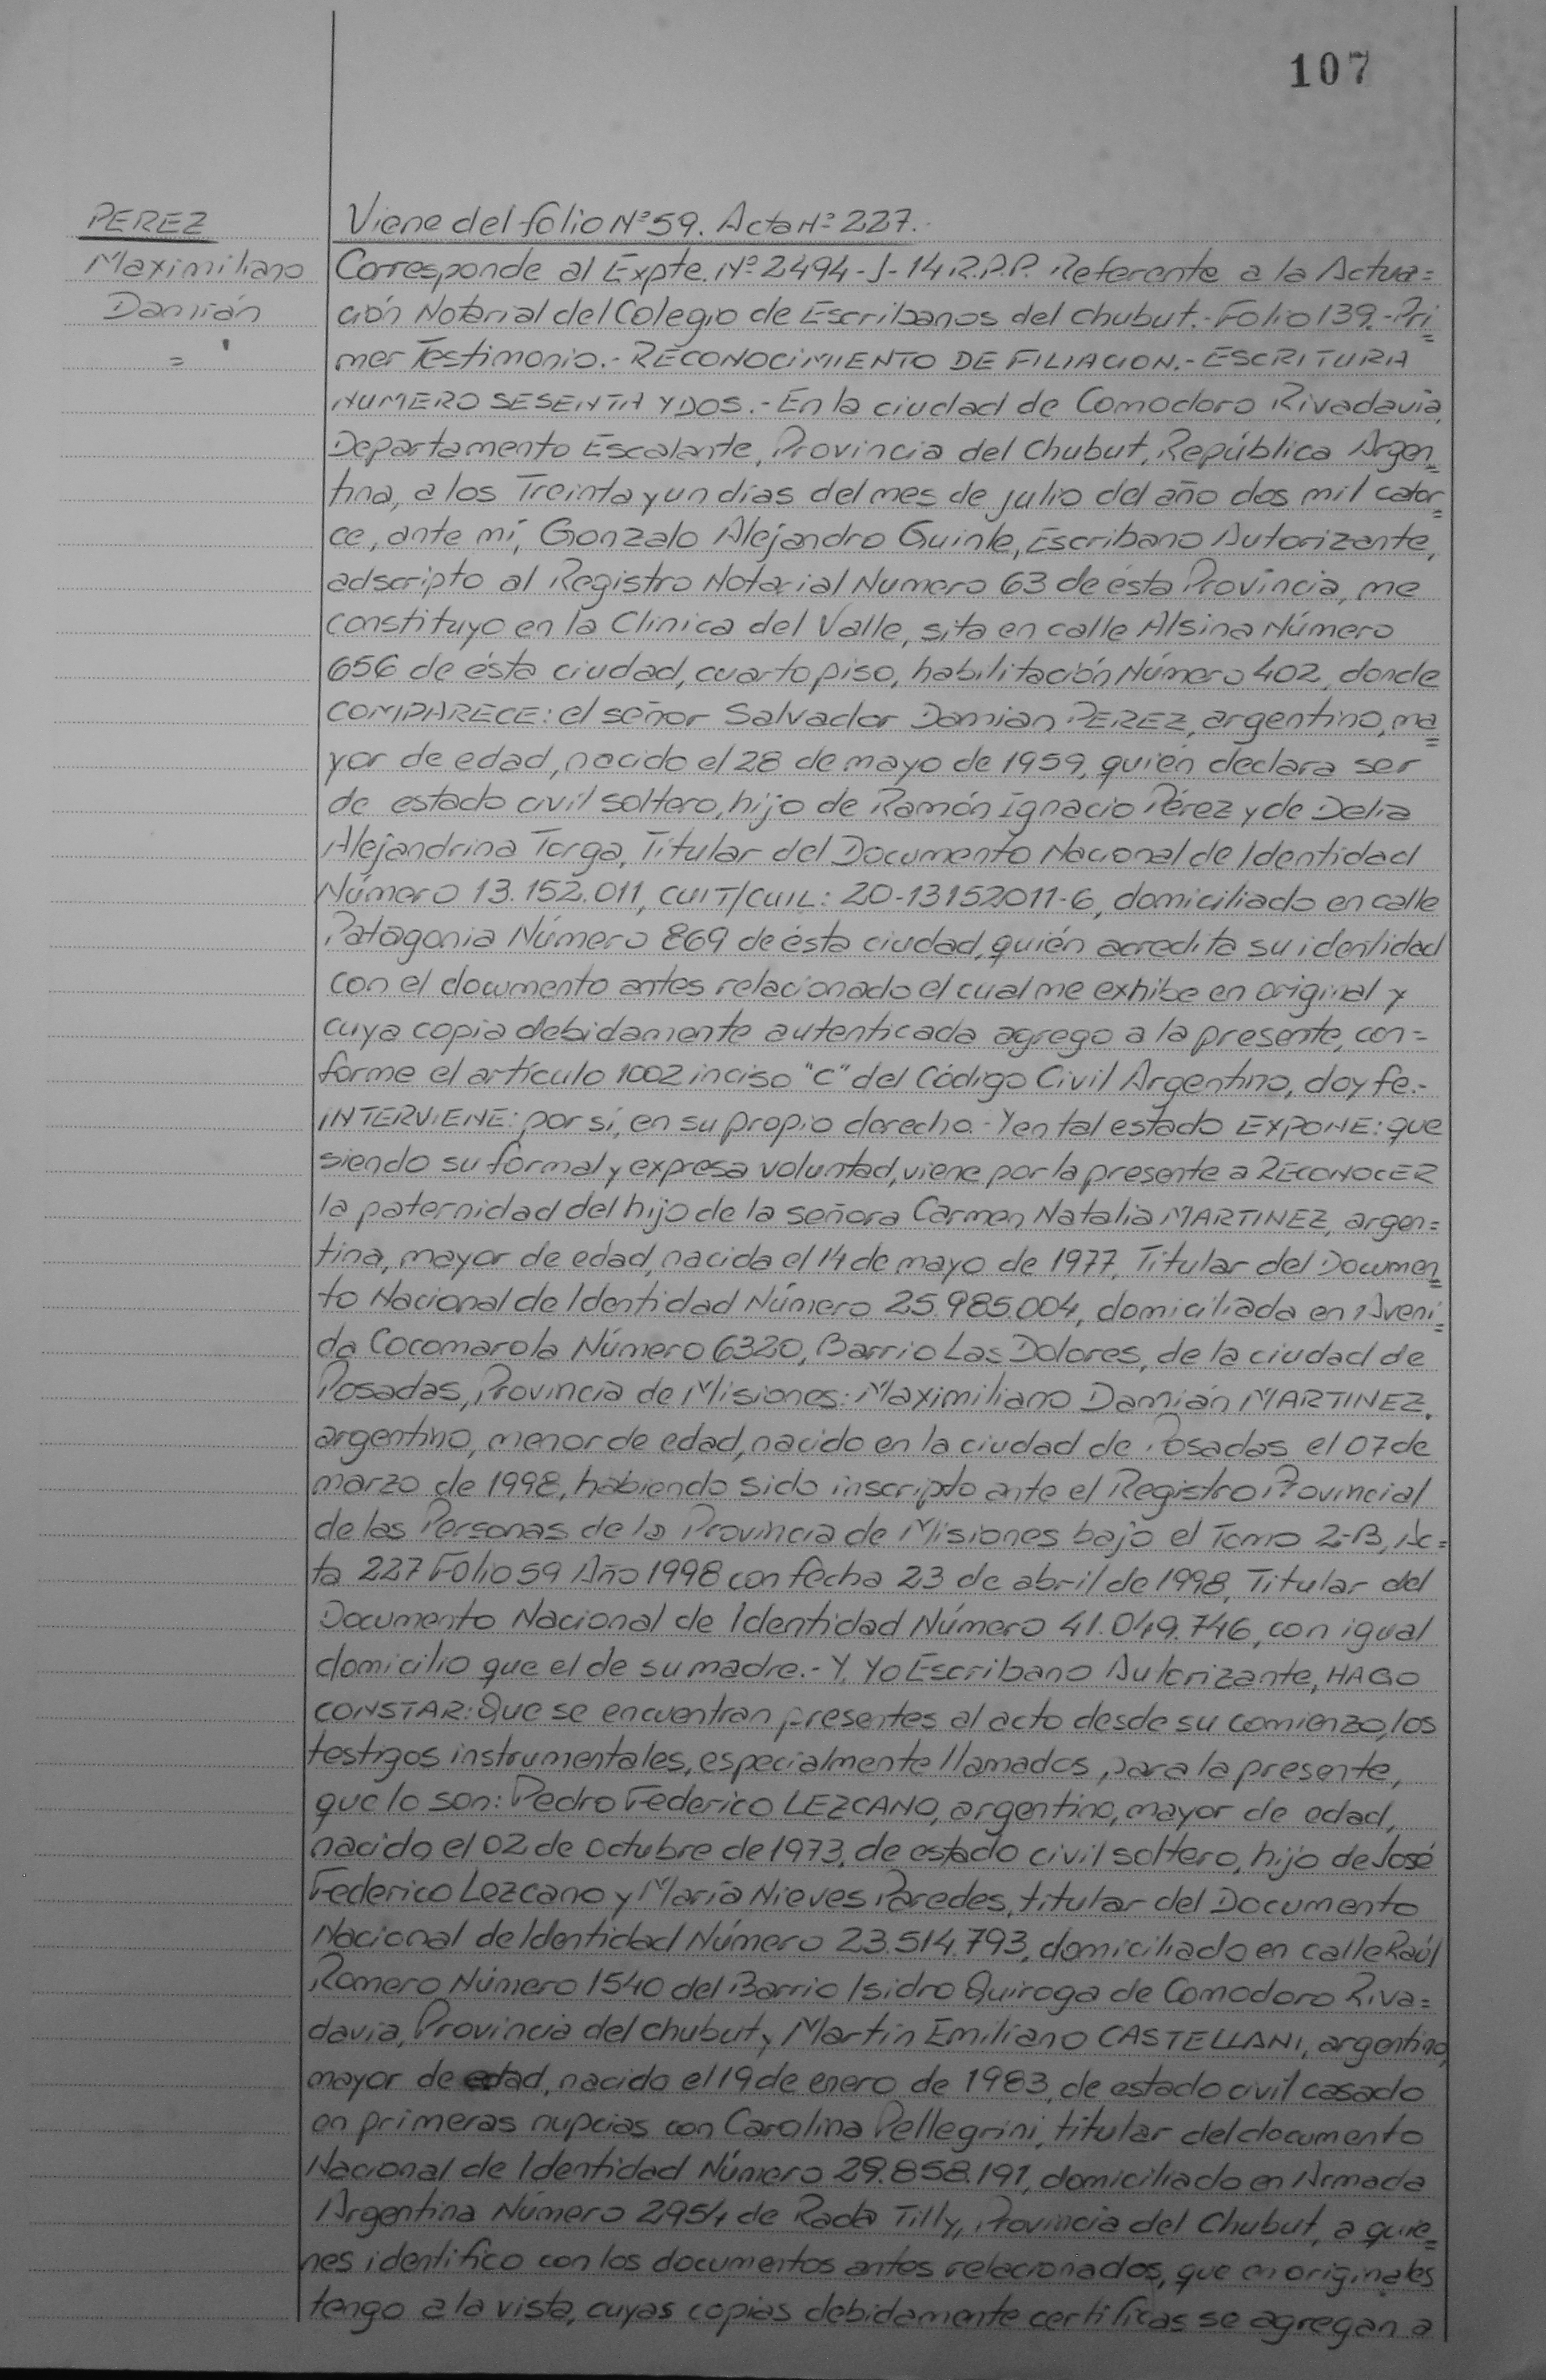 107
PEREZ
Maximiliano
Damián
=
Viene del folio Nº59. Acta Nº 227.-
Corresponde al Expte. Nº 2494-J-14 R.P.P. Referente a la Actua=
ción Notarial del Colegio de Escribanos del Chubut.- Folio 139.- Pri=
mer Testimonio.- RECONOCIMIENTO DE FILIACION.- ESCRITURA
NUMERO SESENTA Y DOS.- En la ciudad de Comodoro Rivadavia,
Departamento Escalante, Provincia del Chubut, República Argen=
tina, a los Treinta y un días del mes de julio del año dos mil cator=
ce, ante mí, Gonzalo Alejandro Guinle, Escribano Autorizante,
adscripto al Registro Notarial Numero 63 de ésta Provincia, me
constituyo en la Clínica del Valle, sita en calle Alsina Número
656 de ésta ciudad, cuarto piso, habilitación Número 402, donde
COMPARECE: el señor Salvador Damian PEREZ, argentino, ma=
yor de edad, nacido el 28 de mayo de 1959, quién declara ser
de estado civil soltero, hijo de Ramón Ignacio Pérez y de Delia
Alejandrina Torga, Titular del Documento Nacional de Identidad
Número 13.152.011, CUIT/CUIL: 20-13152011-6, domiciliado en calle
Patagonia Número 869 de ésta ciudad, quién acredita su identidad
con el documento antes relacionado el cual me exhibe en original y
cuya copia debidamente autenticada agrego a la presente, con=
forme el artículo 1002 inciso "C" del Código Civil Argentino, doy fe.-
INTERVIENE: por sí, en su propio derecho.- Y en tal estado EXPONE: que
siendo su formal y expresa voluntad, viene por la presente a RECONOCER
la paternidad del hijo de la señora Carmen Natalia MARTINEZ, argen=
tina, mayor de edad, nacida el 14 de mayo de 1977, Titular del Documen=
to Nacional de Identidad Número 25.985.004, domiciliada en Aveni=
da Cocomarola Número 6320, Barrio Las Dolores, de la ciudad de
Posadas, Provincia de Misiones: Maximiliano Damián MARTINEZ,
argentino, menor de edad, nacido en la ciudad de Posadas el 07 de
marzo de 1998, habiendo sido inscripto ante el Registro Provincial
de las Personas de la Provincia de Misiones bajo el Tomo 2-B, Ac=
ta 227 Folio 59 Año 1998 con fecha 23 de abril de 1998, Titular del
Documento Nacional de Identidad Número 41.049.746, con igual
domicilio que el de su madre.- Y, Yo Escribano Autorizante, HAGO
CONSTAR: Que se encuentran presentes al acto desde su comienzo, los
testigos instrumentales, especialmente llamados para la presente,
que lo son: Pedro Federico LEZCANO, argentino, mayor de edad,
nacido el 02 de Octubre de 1973, de estado civil soltero, hijo de José
Federico Lezcano y María Nieves Paredes, titular del Documento
Nacional de Identidad Número 23.514.793, domiciliado en calle Raúl
Romero Número 1540 del Barrio Isidro Quiroga de Comodoro Riva=
davia, Provincia del Chubut y Martín Emiliano CASTELLANI, argentino,
mayor de edad, nacido el 19 de enero de 1983, de estado civil casado
en primeras nupcias con Carolina Pellegrini, titular del documento
Nacional de Identidad Número 29.858.191, domiciliado en Armada
Argentina Número 2954 de Rada Tilly, Provincia del Chubut, a quie=
nes identifico con los documentos antes relacionados, que en originales
tengo a la vista, cuyas copias debidamente certificas se agregan a